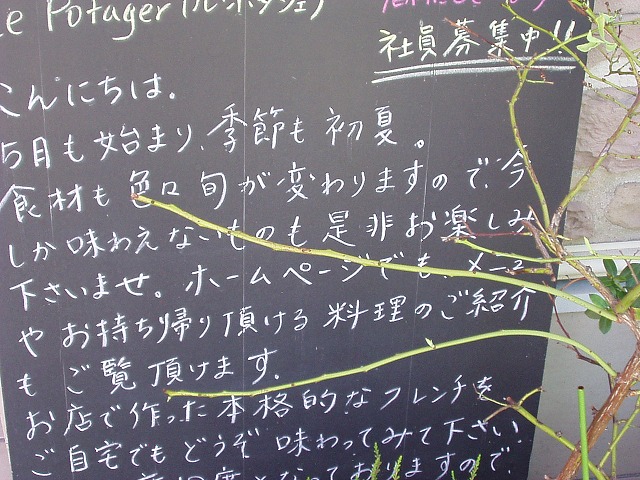 Le Potager (ル・ポタジェ)
社員募集中!!
こんにちは。
5月も始まり、季節も初夏。
食材も色々旬が変わりますので、今
しか味わえないものも是非お楽しみ
下さいませ。ホームページでも、メニュー
やお持ち帰り頂ける料理のご紹介
もご覧頂けます。
お店で作った本格的なフレンチを
ご自宅でもどうぞ味わってみて下さい。
なっておりますので、